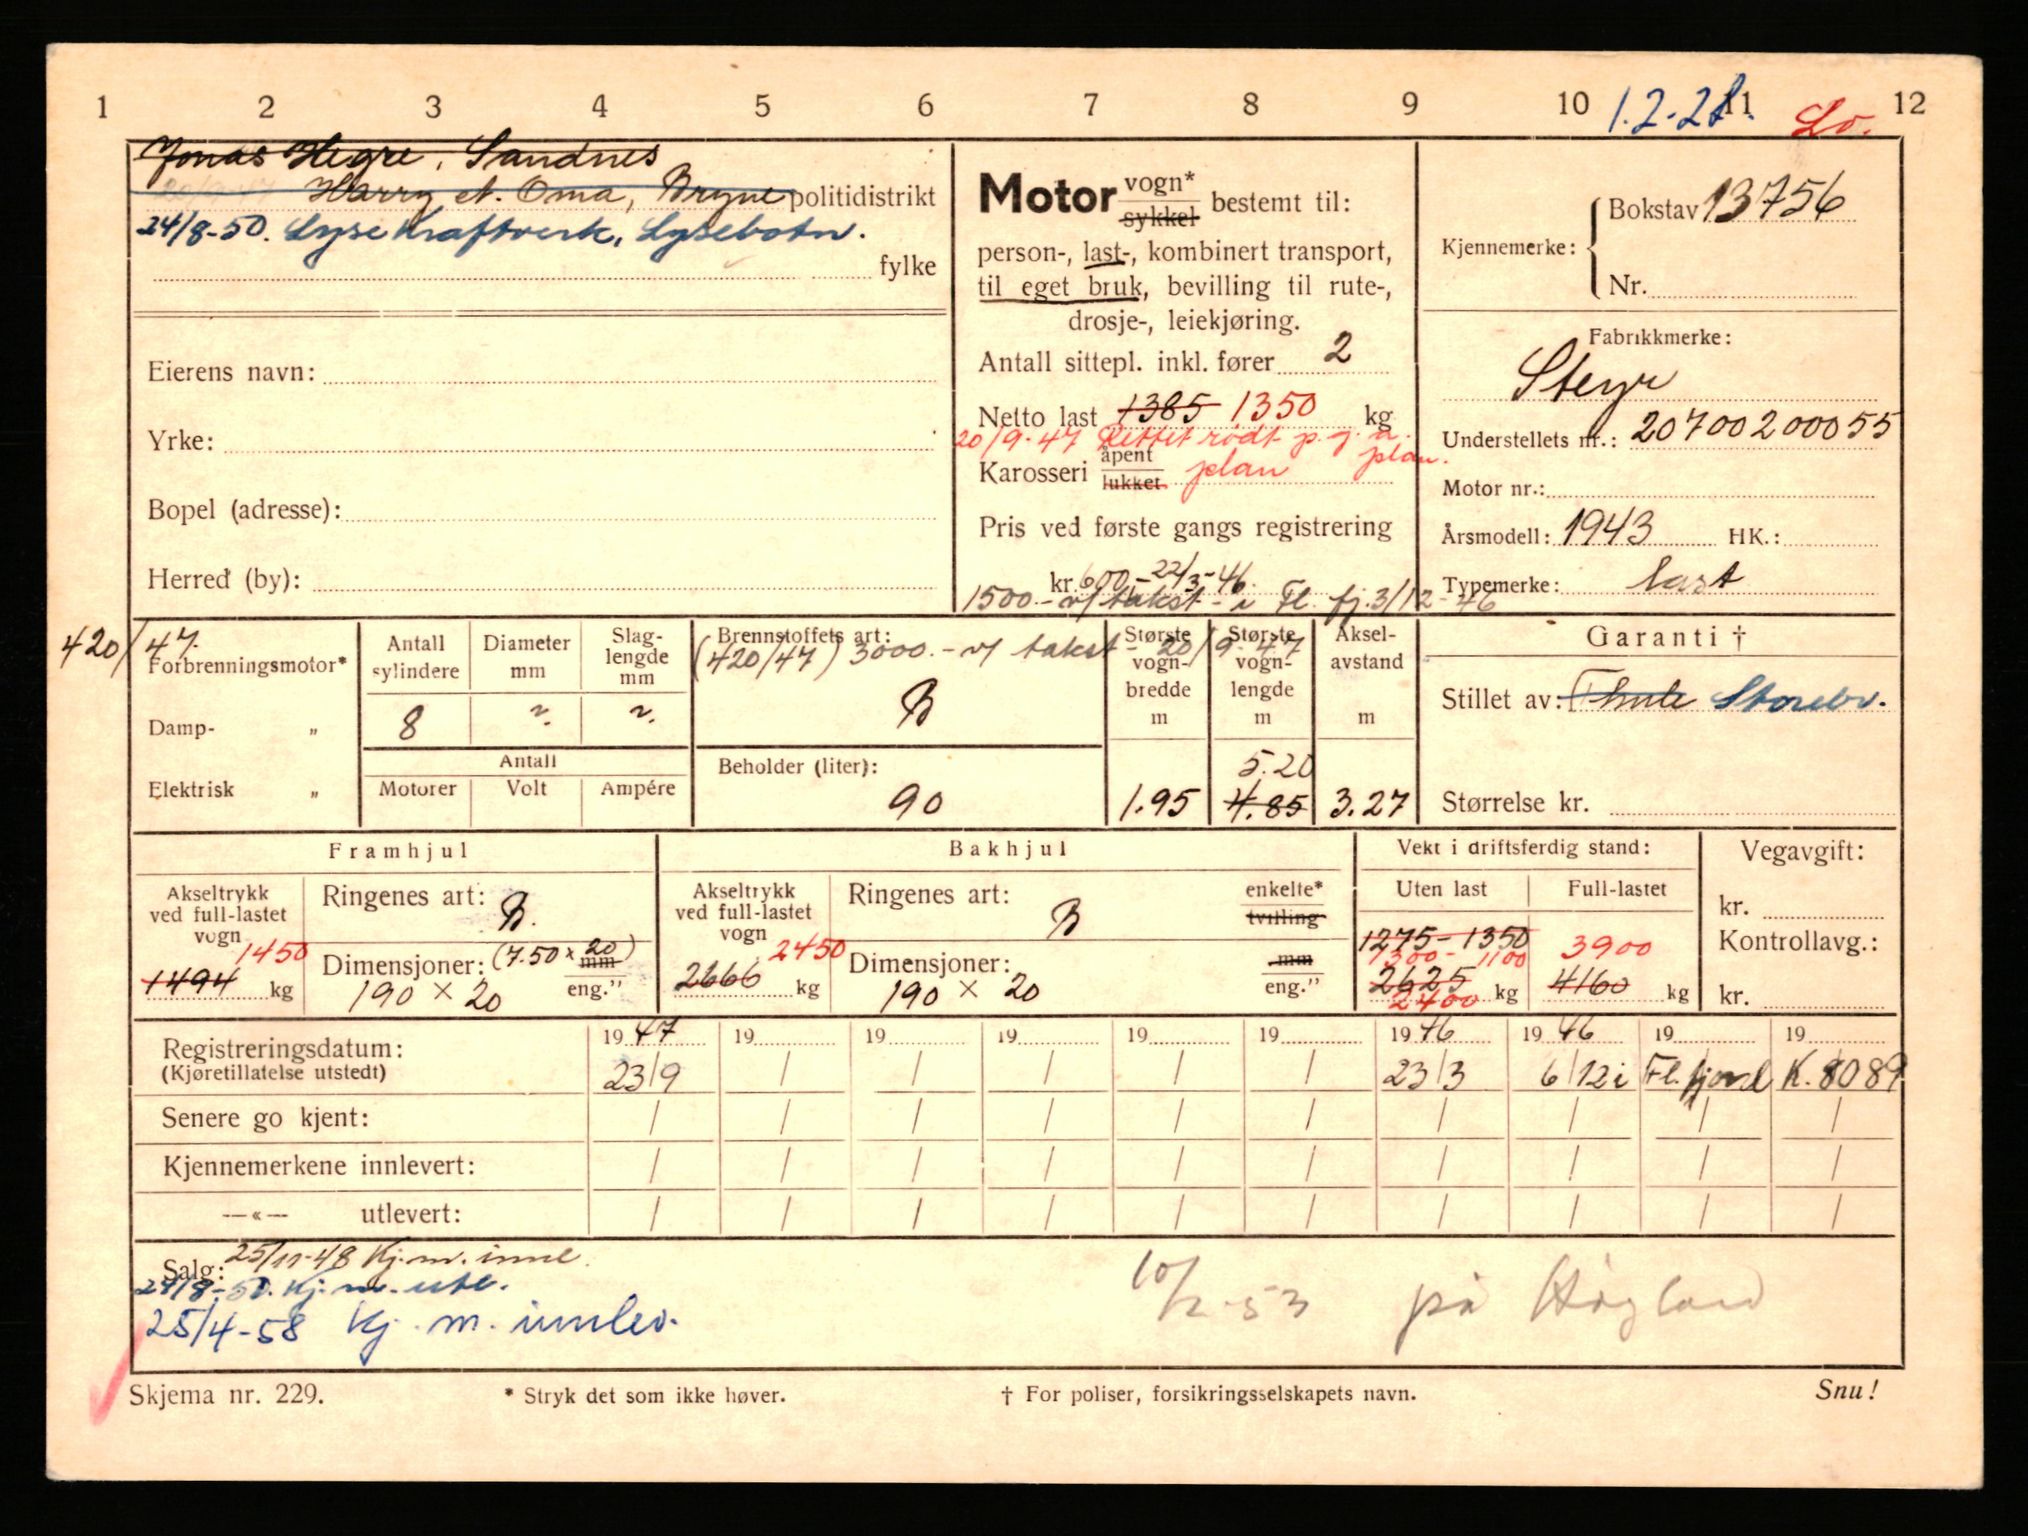 1 2 3 4 5 6 7 8 9 10 11 12
1.2-28. Lo.
Jonas Hegre, Sandnes
Harry et. Oma, Bryne politidistrikt
24/8-50. Lyse Kraftverk, Lysebotn.
fylke
Eierens navn:
Yrke:
Bopel (adresse):
Herred (by):
Motor vogn* sykkel bestemt til:
person-, last-, kombinert transport,
til eget bruk, bevilling til rute-,
drosje-, leiekjøring.
Antall sittepl. inkl. fører 2
Netto last 1385 1350 kg
20/9-47 Rettet rødt p. g. a. plan.
Karosseri åpent lukket plan
Pris ved første gangs registrering
kr. 600,- 22/3-46.
1500.- v/ takst - i Fl. fj. 3/12-46
Kjennemerke: Bokstav 13756
Nr.
Fabrikkmerke:
Steyr
Understellets nr.: 20700200055
Motor nr.:
Årsmodell: 1943 HK.:
Typemerke: last
420/47.
Forbrenningsmotor*
Damp- „
Elektrisk „
Antall sylindere
Diameter mm
Slag-lengde mm
8 ~. ~.
Antall
Motorer Volt Ampére
Brennstoffets art:
(420/47) 3000.- v/ takst - 20/9-47
B
Beholder (liter):
90
Største vogn-bredde m
1.95
Største vogn-lengde m
5.20
4.85
Aksel-avstand m
3.27
Garanti †
Stillet av: Thule Storebr.
Størrelse kr.
Framhjul
Akseltrykk ved full-lastet vogn
1450
1494 kg
Ringenes art: B.
Dimensjoner: (7.50 × 20) mm
190 × 20 eng."
Bakhjul
Akseltrykk ved full-lastet vogn
2450
2666 kg
Ringenes art: B
enkelte*
tvilling
Dimensjoner: mm
190 × 20 eng."
Vekt i driftsferdig stand:
Uten last Full-lastet
1275-1350
1300-1100 3900
2625 kg 4160 kg
2400
Vegavgift:
kr.
Kontrollavg.:
kr.
Registreringsdatum:
(Kjøretillatelse utstedt)
19 47 19 19 19 19 19 19 46 19 46 19 19
23/9 / / / / / 23/3 6/12 i Fl.fjord K. 8089
Senere go kjent: / / / / / / / / / /
Kjennemerkene innlevert: / / / / / / / / / /
—«— utlevert: / / / / / / / / / /
Salg: 25/11-48 Kj. m. innl.
24/8-50. Kj. m. utl.
25/4-58 Kj. m. innlev.
10/2-53 på Høgland
Skjema nr. 229.
* Stryk det som ikke høver.
† For poliser, forsikringsselskapets navn.
Snu!